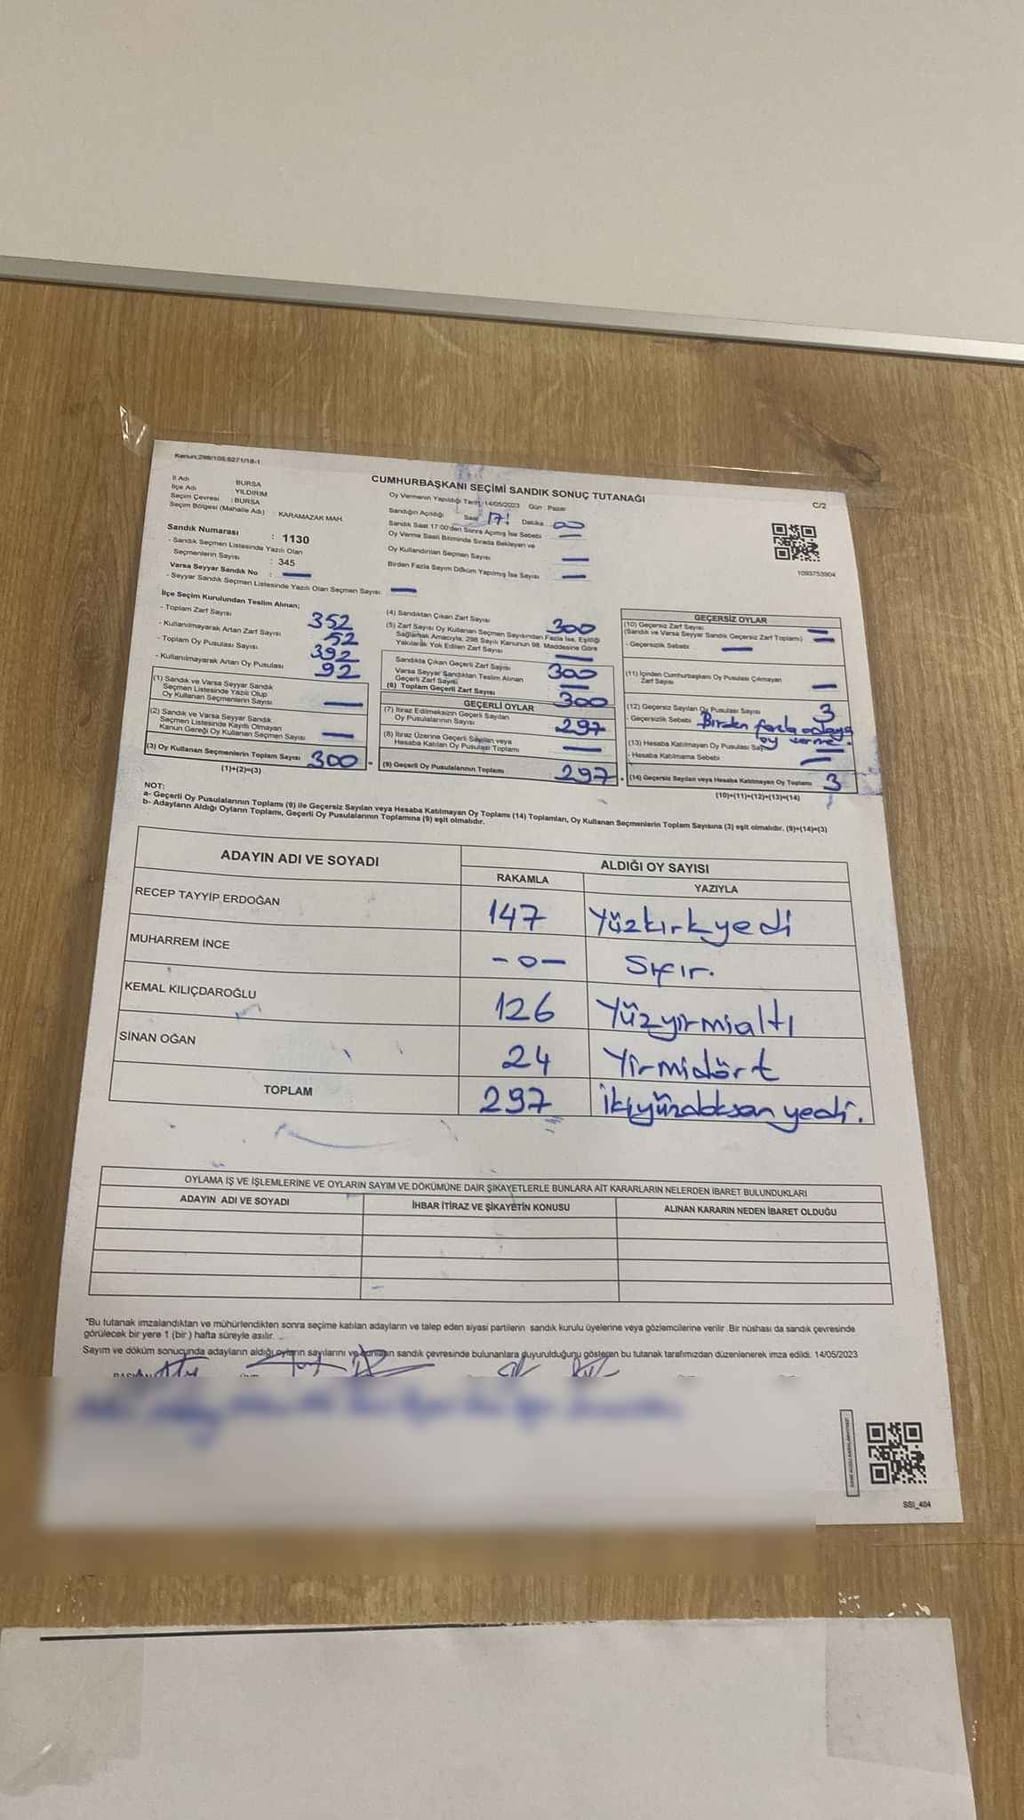 Kanun:298/108:6271/18-1
CUMHURBAŞKANI SEÇİMİ SANDIK SONUÇ TUTANAĞI
C/2
İl Adı : BURSA
İlçe Adı : YILDIRIM
Seçim Çevresi : BURSA
Seçim Bölgesi (Mahalle Adı) : KARAMAZAK MAH.
Sandık Numarası : 1130
- Sandık Seçmen Listesinde Yazılı Olan Seçmenlerin Sayısı : 345
Varsa Seyyar Sandık No : —
- Seyyar Sandık Seçmen Listesinde Yazılı Olan Seçmen Sayısı : —
Oy Vermenin Yapıldığı Tarih: 14/05/2023 Gün : Pazar
Sandığın Açıldığı Saat 17: Dakika 00
Sandık Saat 17:00'den Sonra Açılmış İse Sebebi —
Oy Verme Saati Bitiminde Sırada Bekleyen ve
Oy Kullandırılan Seçmen Sayısı —
Birden Fazla Sayım Döküm Yapılmış İse Sayısı —
1093753904
İlçe Seçim Kurulundan Teslim Alınan;
- Toplam Zarf Sayısı 352
- Kullanılmayarak Artan Zarf Sayısı 52
- Toplam Oy Pusulası Sayısı 392
- Kullanılmayarak Artan Oy Pusulası 92
(1) Sandık ve Varsa Seyyar Sandık
Seçmen Listesinde Yazılı Olup
Oy Kullanan Seçmenlerin Sayısı —
(2) Sandık ve Varsa Seyyar Sandık
Seçmen Listesinde Kayıtlı Olmayan
Kanun Gereği Oy Kullanan Seçmen Sayısı —
(3) Oy Kullanan Seçmenlerin Toplam Sayısı 300
(1)+(2)=(3)
(4) Sandıktan Çıkan Zarf Sayısı 300
(5) Zarf Sayısı Oy Kullanan Seçmen Sayısından Fazla İse, Eşitliği
Sağlamak Amacıyla, 298 Sayılı Kanunun 98. Maddesine Göre
Yakılarak Yok Edilen Zarf Sayısı —
Sandıkta Çıkan Geçerli Zarf Sayısı 300
Varsa Seyyar Sandıktan Teslim Alınan
Geçerli Zarf Sayısı —
(6) Toplam Geçerli Zarf Sayısı 300
GEÇERLİ OYLAR
(7) İtiraz Edilmeksizin Geçerli Sayılan
Oy Pusulalarının Sayısı 297
(8) İtiraz Üzerine Geçerli Sayılan veya
Hesaba Katılan Oy Pusulası Toplamı —
(9) Geçerli Oy Pusulalarının Toplamı 297
GEÇERSİZ OYLAR
(10) Geçersiz Zarf Sayısı
(Sandık ve Varsa Seyyar Sandık Geçersiz Zarf Toplamı) —
- Geçersizlik Sebebi —
(11) İçinden Cumhurbaşkanı Oy Pusulası Çıkmayan
Zarf Sayısı —
(12) Geçersiz Sayılan Oy Pusulası Sayısı 3
- Geçersizlik Sebebi Birden fazla adaya
oy verme.
(13) Hesaba Katılmayan Oy Pusulası Sayısı —
- Hesaba Katılmama Sebebi —
(14) Geçersiz Sayılan veya Hesaba Katılmayan Oy Toplamı 3
(10)+(11)+(12)+(13)=(14)
NOT:
a- Geçerli Oy Pusulalarının Toplamı (9) ile Geçersiz Sayılan veya Hesaba Katılmayan Oy Toplamı (14) Toplamları, Oy Kullanan Seçmenlerin Toplam Sayısına (3) eşit olmalıdır. (9)+(14)=(3)
b- Adayların Aldığı Oyların Toplamı, Geçerli Oy Pusulalarının Toplamına (9) eşit olmalıdır.
ADAYIN ADI VE SOYADI
ALDIĞI OY SAYISI
RAKAMLA YAZIYLA
RECEP TAYYİP ERDOĞAN 147 Yüzkırkyedi
MUHARREM İNCE -0- Sıfır.
KEMAL KILIÇDAROĞLU 126 Yüzyirmialtı
SİNAN OĞAN 24 Yirmidört
TOPLAM 297 İkiyüzdoksanyedi.
OYLAMA İŞ VE İŞLEMLERİNE VE OYLARIN SAYIM VE DÖKÜMÜNE DAİR ŞİKAYETLERLE BUNLARA AİT KARARLARIN NELERDEN İBARET BULUNDUKLARI
ADAYIN ADI VE SOYADI İHBAR İTİRAZ VE ŞİKAYETİN KONUSU ALINAN KARARIN NEDEN İBARET OLDUĞU
*Bu tutanak imzalandıktan ve mühürlendikten sonra seçime katılan adayların ve talep eden siyasi partilerin sandık kurulu üyelerine veya gözlemcilerine verilir. Bir nüshası da sandık çevresinde
görülecek bir yere 1 (bir) hafta süreyle asılır.
Sayım ve döküm sonucunda adayların aldığı oyların sayılarını sandık çevresinde bulunanlara duyurulduğunu gösteren bu tutanak tarafımızdan düzenlenerek imza edildi. 14/05/2023
SSI_404